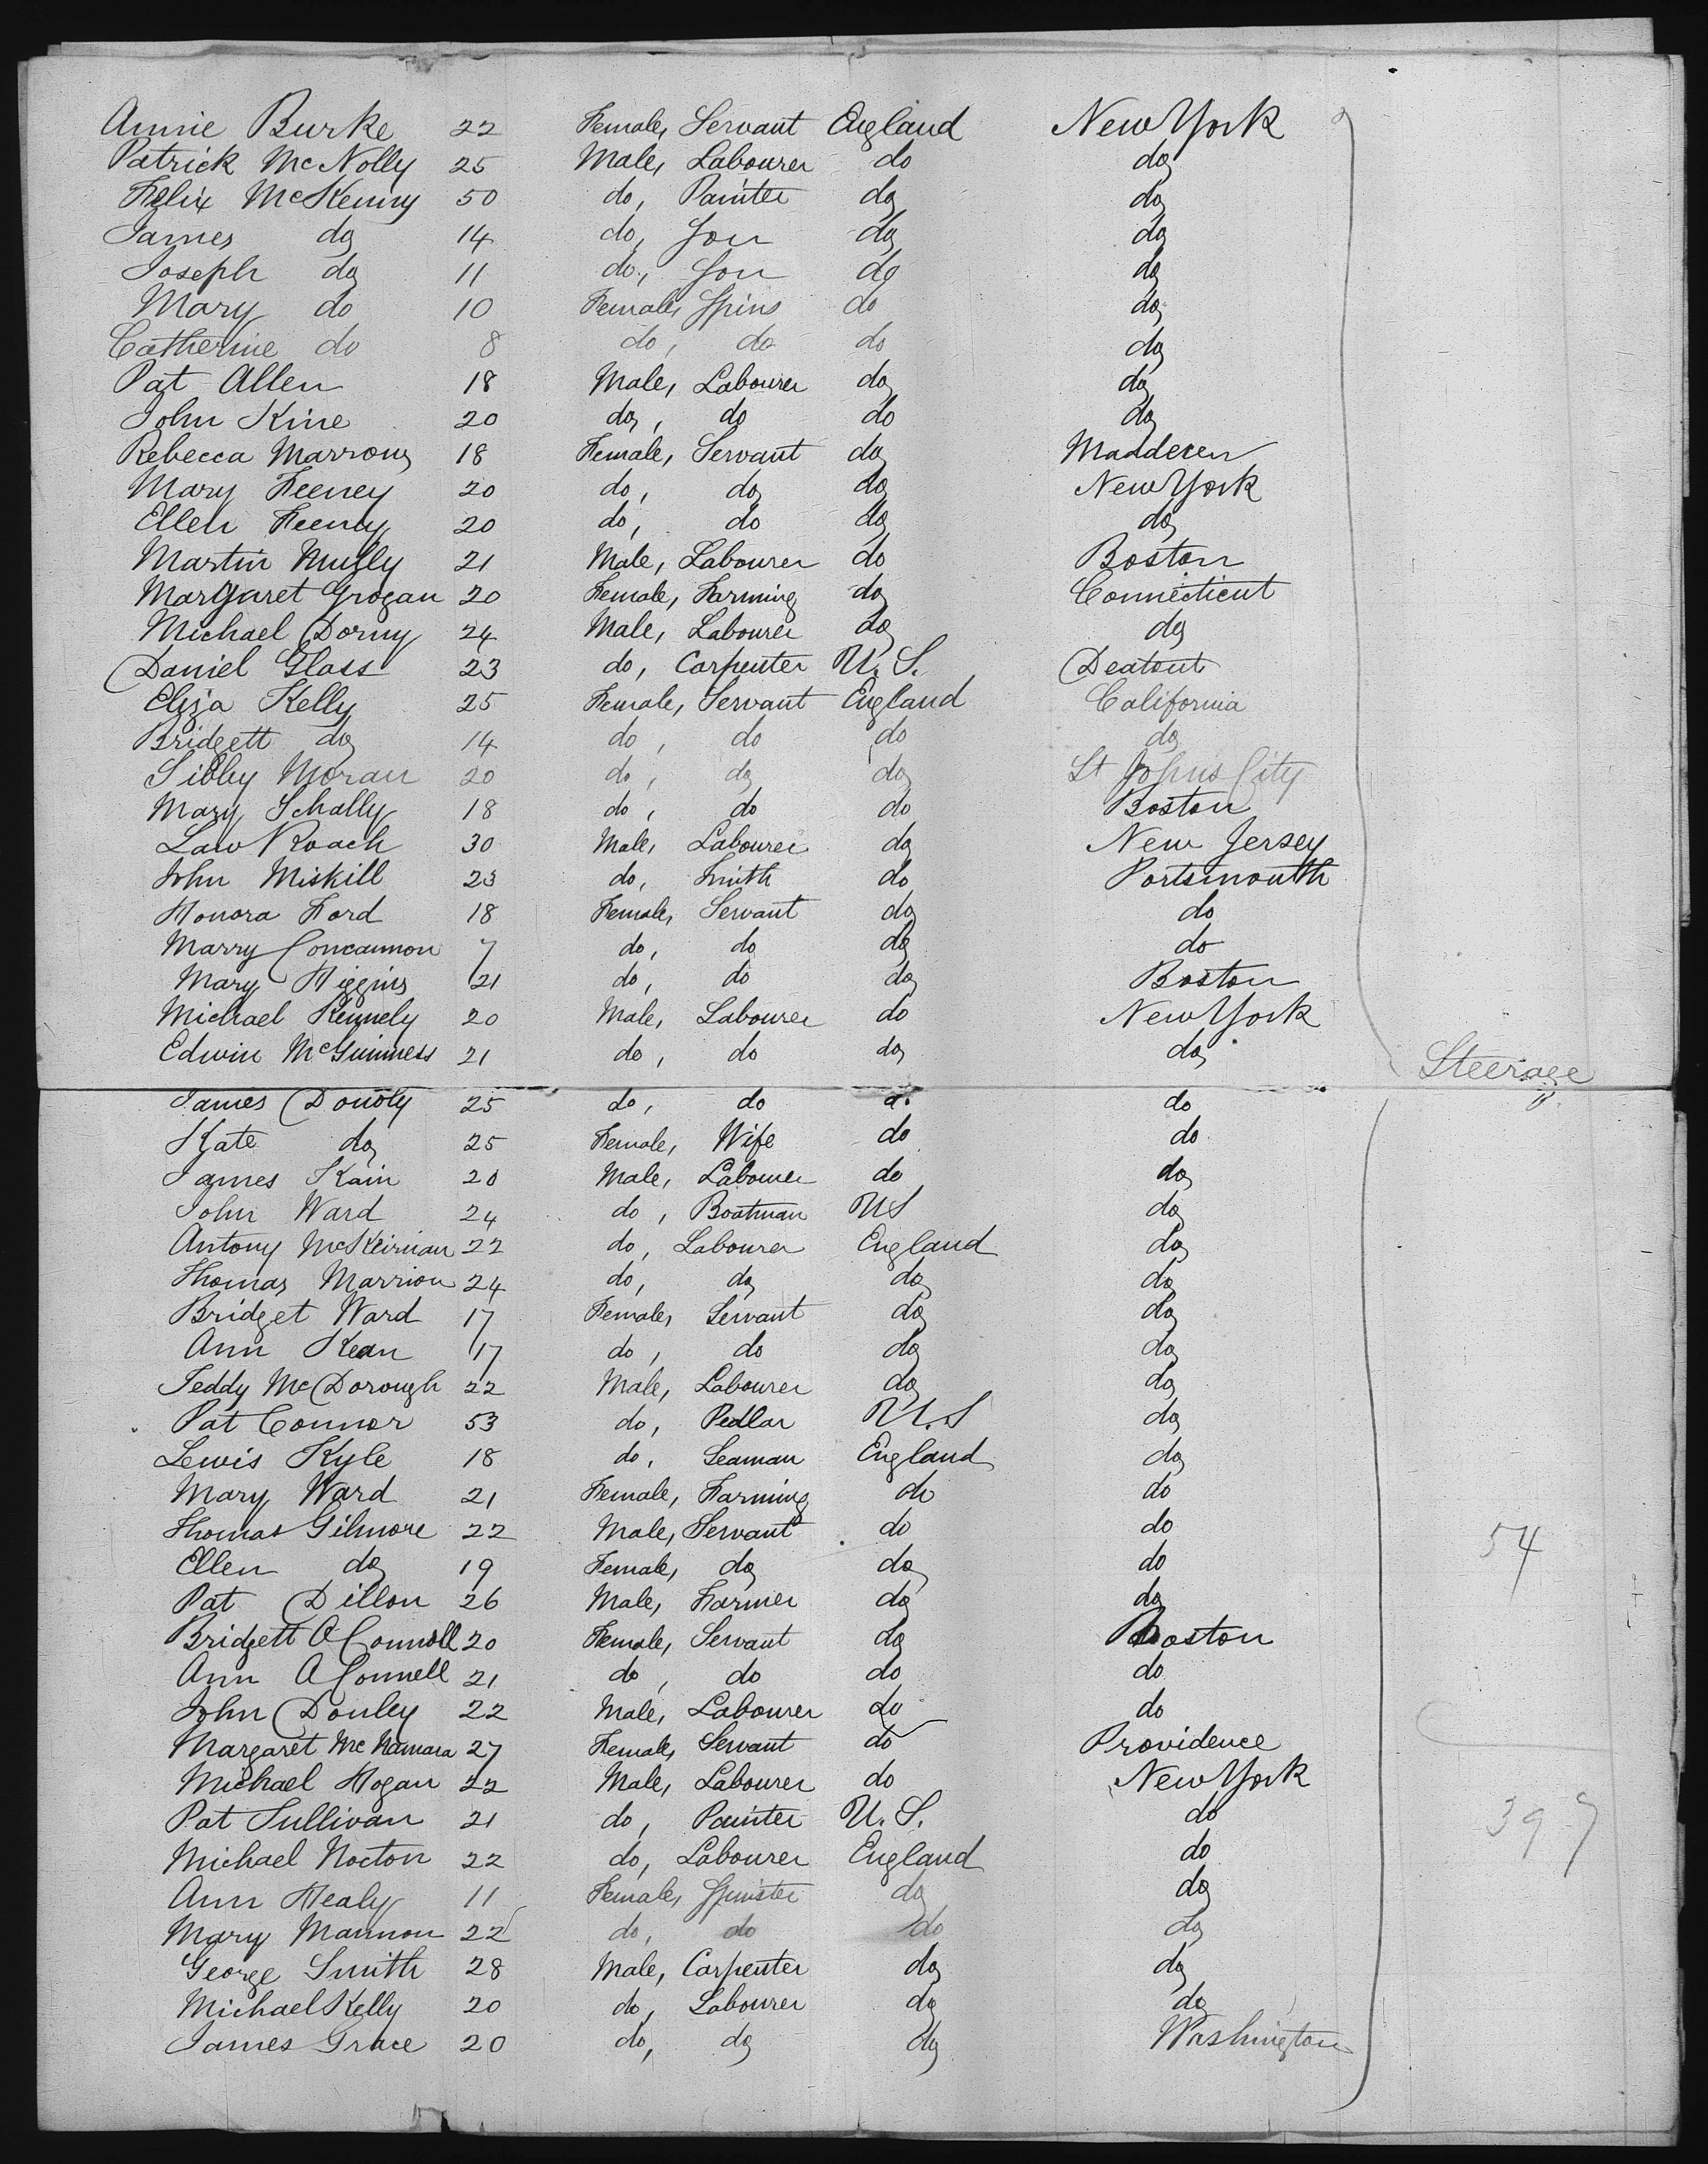 Annie Burke 22 Female, Servant England New York
Patrick McNolly 25 Male, Labourer do do
Felix McKenny 50 do, Painter do do
James do 14 do, Son do do
Joseph do 11 do, Son do do
Mary do 10 Female, Spins do do
Catherine do 8 do, do do do
Pat Allen 18 Male, Labourer do do
John Kine 20 do, do do do
Rebecca Marrow 18 Female, Servant do Madderen
Mary Feeney 20 do, do do New York
Ellen Feeny 20 do, do do do
Martin Mully 21 Male, Labourer do Boston
Margaret Grogan 20 Female, Farming do Connecticut
Michael Dorny 24 Male, Labourer do do
Daniel Glass 23 do, Carpenter U. S. Deatout
Eliza Kelly 25 Female, Servant England California
Bridgett do 14 do, do do do
Sibby Moran 20 do, do do St Johns City
Mary Schally 18 do, do do Boston
Law Roach 30 Male, Labourer do New Jersey
John Miskill 23 do, Smith do Portsmouth
Honora Ford 18 Female, Servant do do
Marry Concannon 7 do, do do do
Mary Higgins 21 do, do do Boston
Michael Kennely 20 Male, Labourer do New York
Edwin McGuinness 21 do, do do do
Steerage
James Donoty 25 do, do do do
Kate do 25 Female, Wife do do
James Kain 20 Male, Labourer do do
John Ward 24 do, Boatman US do
Antony McKeirnan 22 do, Labourer England do
Thomas Marrion 24 do, do do do
Bridget Ward 17 Female, Servant do do
Ann Kean 17 do, do do do
Teddy McDorough 22 Male, Labourer do do
Pat Connor 53 do, Pedlar U. S do
Lewis Kyle 18 do, Seaman England do
Mary Ward 21 Female, Farming do do
Thomas Gilmore 22 Male, Servant do do
54
Ellen do 19 Female, do do do
Pat Dillon 26 Male, Farmer do do
Bridgett OConnell 20 Female, Servant do Boston
Ann OConnell 21 do, do do do
John Donley 22 Male, Labourer do do
Margaret McNamara 27 Female, Servant do Providence
Michael Hogan 22 Male, Labourer do New York
Pat Sullivan 21 do, Painter U. S. do
397
Michael Nocton 22 do, Labourer England do
Ann Healy 11 Female, Spinster do do
Mary Mannon 22 do, do do do
George Smith 28 Male, Carpenter do do
Michael Kelly 20 do, Labourer do do
James Grace 20 do, do do Washington